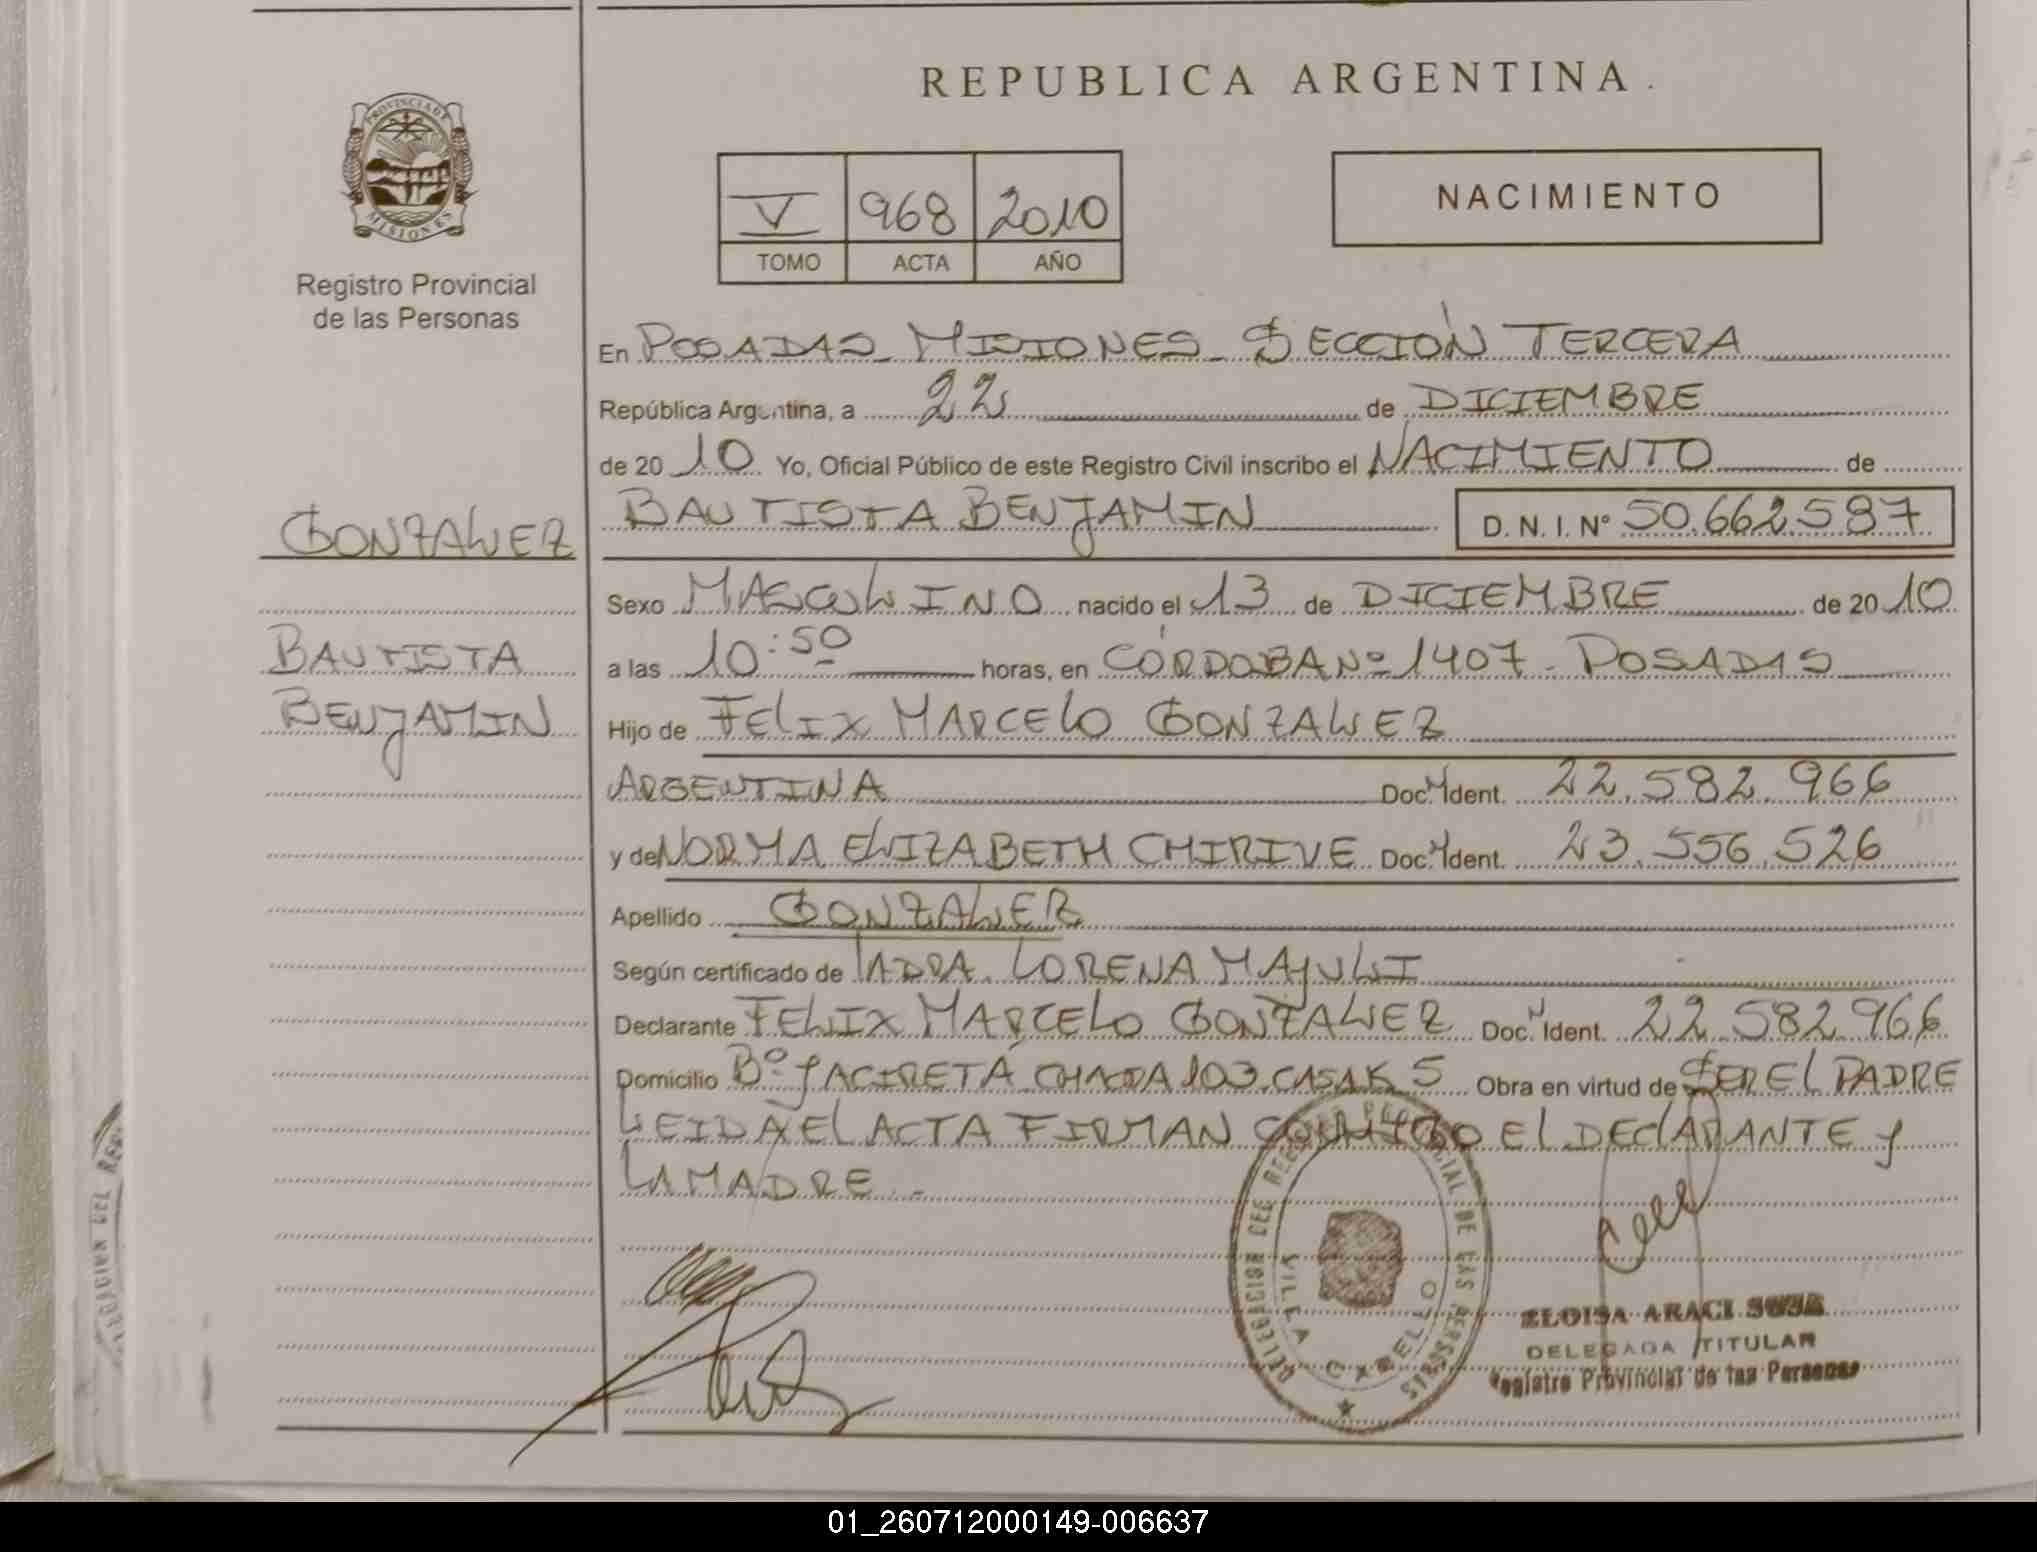 REPUBLICA ARGENTINA.
PROVINCIA DE
MISIONES
Registro Provincial
de las Personas
V 968 2010
TOMO ACTA AÑO
NACIMIENTO
En POSADAS MISIONES - SECCIÓN TERCERA
República Argentina, a 22 de DICIEMBRE
de 2010 Yo, Oficial Público de este Registro Civil inscribo el NACIMIENTO de
BAUTISTA BENJAMIN D. N. I. Nº 50.662.587
GONZALEZ
Sexo MASCULINO nacido el 13 de DICIEMBRE de 2010
BAUTISTA
a las 10:50 horas, en CÓRDOBA Nº 1407 - POSADAS
BENJAMIN
Hijo de FELIX MARCELO GONZALEZ
ARGENTINA Doc. Ident. 22.582.966
y de NORMA ELIZABETH CHIRIVE Doc. Ident. 23.556.526
Apellido GONZALEZ
Según certificado de LORENA MAJULI
Declarante FELIX MARCELO GONZALEZ Doc. Ident. 22.582.966
Domicilio Bº YACIRETÁ CHACRA 103 CASA K 5 Obra en virtud de SER EL PADRE
LEIDA EL ACTA FIRMAN CONMIGO EL DECLARANTE Y
LA MADRE.-
DELEGACION DEL REGISTRO PROVINCIAL DE LAS PERSONAS
VILLA CABELLO
ELOISA ARACI SOSA
DELEGADA TITULAR
Registro Provincial de las Personas
01_260712000149-006637